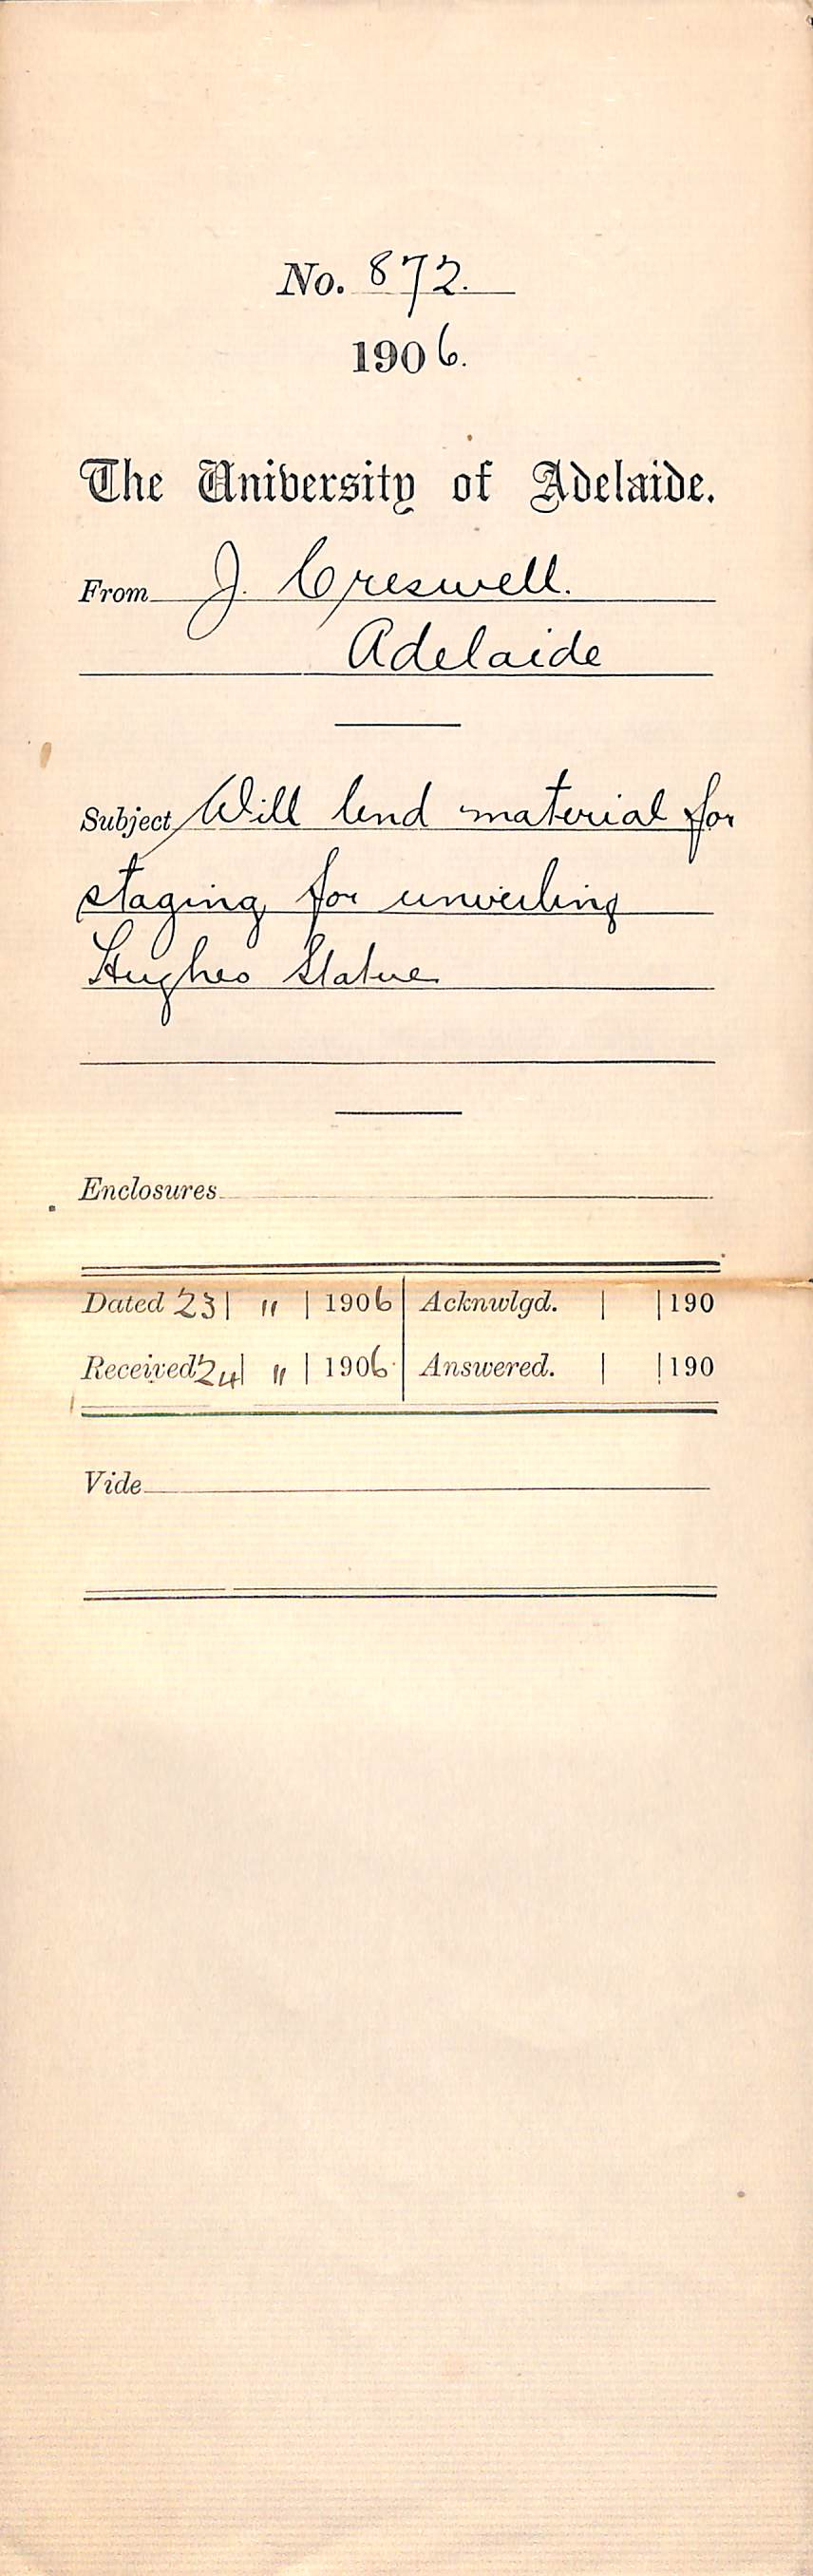 No. 872.
1906.
The University of Adelaide.
From J. Creswell.
Adelaide
Subject Will lend material for
staging for unveiling
Hughes Statue
Enclosures
Dated 23 | 11 | 1906 | Acknwlgd. | | 190
Received 24 | 11 | 1906. | Answered. | | 190
Vide